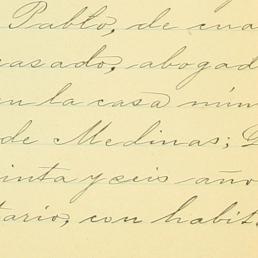 Pablo, de cua
casado, abogad
en la casa núm
de Medinas; D
inta y seis año
tario, con habit